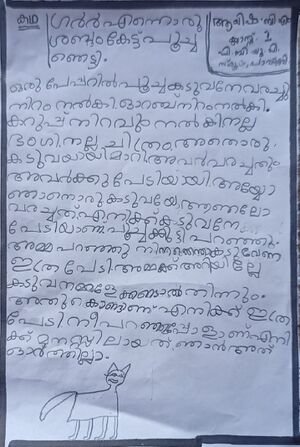 കഥ
ഗർർ എന്നൊരു
ശബ്ദം കേട്ട് പൂച്ച
ഞെട്ടി.
ക്ലാസ്സ് 2
ഒരു പേപ്പറിൽ പൂച്ച കടുവനേ വരച്ചു
നിറം നൽകി ഓറഞ്ച് നിറം നൽകി.
കറുപ്പ് നിറവും നൽകി നല്ല
ഭംഗി നല്ല ചിത്രം അതൊരു
കടുവയായി മാറി അവർ വരച്ചതും
അവർക്കു പേടിയായി അയ്യോ
ഞാനൊരു കടുവയേ ആണല്ലോ
വരച്ചത് എനിക്ക് കടുവനേ
പേടിയാണ് പൂച്ചക്കുട്ടി പറഞ്ഞു.
അമ്മ പറഞ്ഞു നിനക്കെന്തു കടുവേണ
ഇത്ര പേടി അമ്മക്ക് അറിയില്ലേ
കടുവ നമ്മളേ കണ്ടാൽ തിന്നും.
അതു കൊണ്ടാണ് എനിക്ക് ഇത്ര
പേടി നീ പറഞ്ഞപ്പോളാണ് എനി
ക്ക് മനസ്സിലായത് ഞാൻ അത്
ഓർത്തില്ലാ.